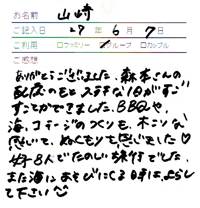 お名前 山崎
ご記入日 27年6月7日
ご利用 □ファミリー □グループ □カップル
ご感想
ありがとうございました。森本さんの
配慮のもとステキな1日がすご
すことができました。BBQや、
海、コテージのつくりも、木とい
感じで、ぬくもりも感じました♡
女子8人でたのしい旅行でした。
また海にあそびにくる日まで、よろし
て下さい